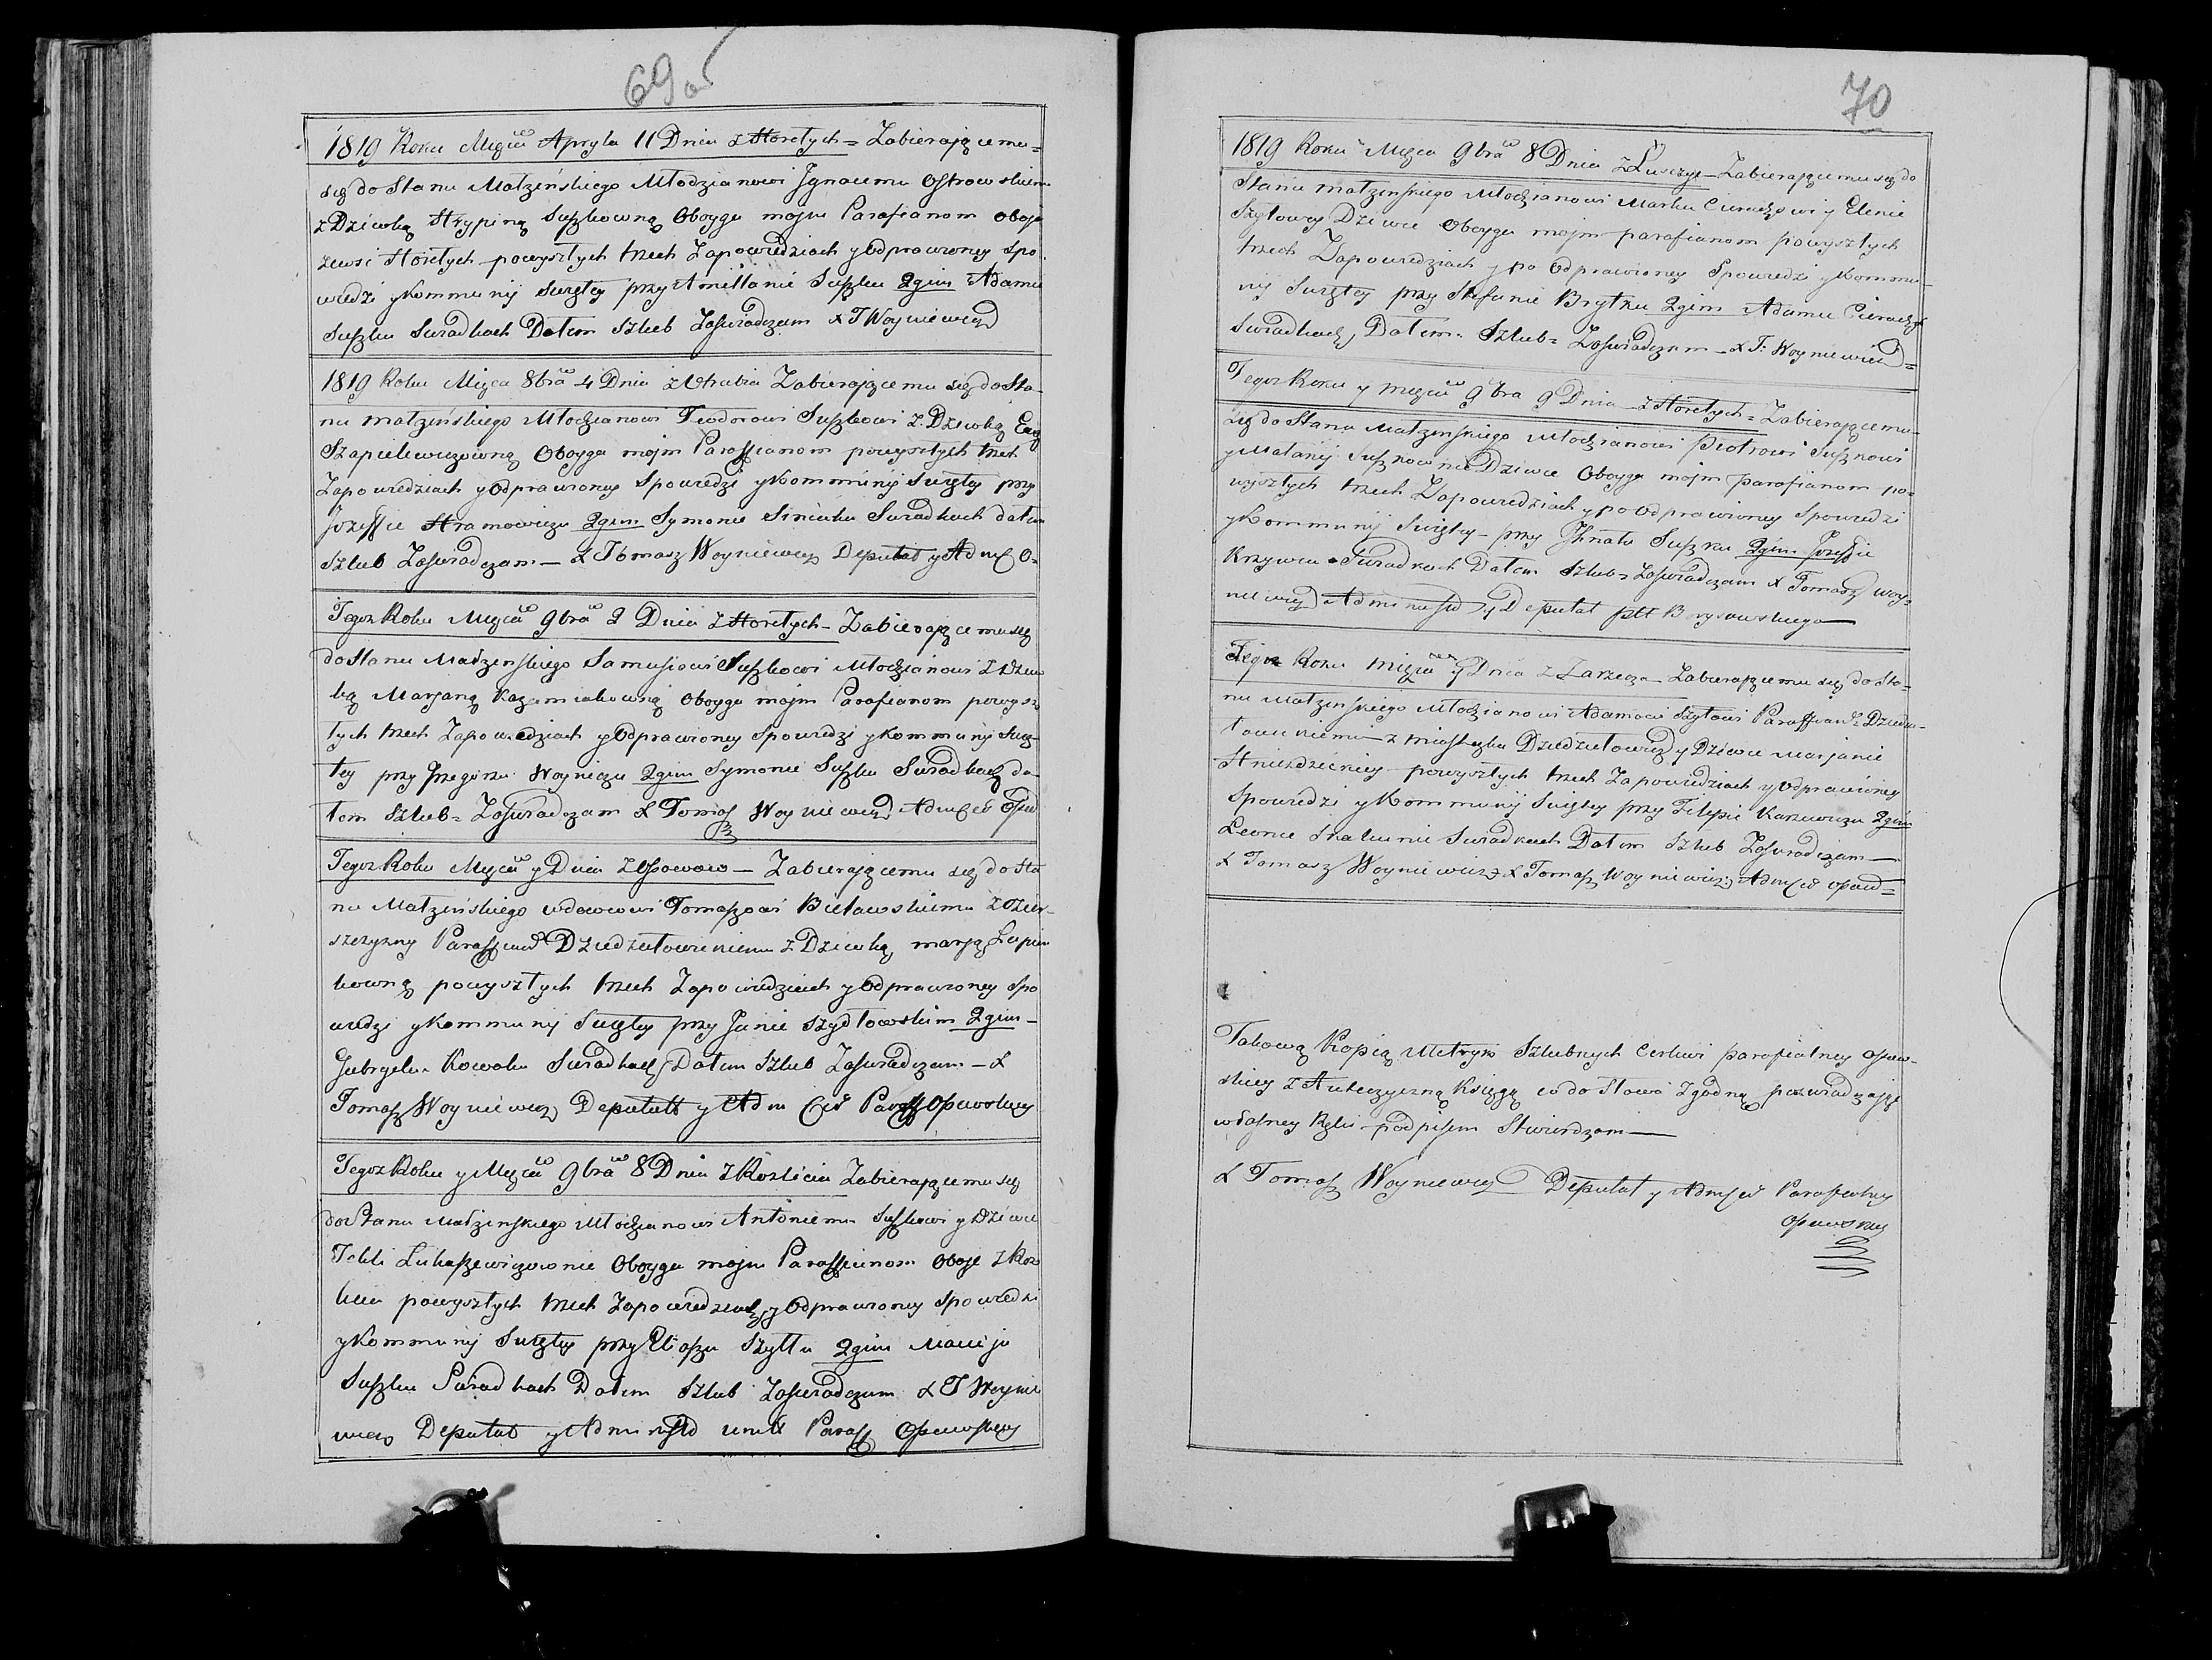 69 a
1819 Roku Mięca Apryla 11 Dnia z Horełych = Zabierającemu =
się do Stanu Małzeńskiego Młodzianowi Jgnacemu Ostrowskiemu
z Dziewką Suszkowną Oboyga mojm Parafianom oboje
zewsi Horełych powyszłych trzech Zapowiedziach y Odprawioney Spo
wiedzi y Kommunij Swiętey przy Amillanie Suszku 2gim Adamu
Suszku Swiadkach Datem Szlub Zaswiadczam X T Woyniewicz
1819 Roku Mięca 8bra 4 Dnia z Zabierającemu się do Sta-
nu małzeńskiego Młodzianowi Teodorowi Suszkowi z Dziewką Ewą
Szapielewiczowną Oboyga mojm Paraffianom powyszłych trzech
Zapowiedziach y Odprawioney Spowiedzi y Kommunij Swiętey przy
Jozeffie Hramowiczu 2gim Symonie Siniaku Swiadkach datem
Szlub Zaswiadczam — X Tomasz Woyniewicz Deputat y Adm O-
Tegoz Roku Mięca 9bra 2 Dnia z Horełych - Zabierającemu się
do Stanu Małzenskiego Samusiowi Suszkowi Młodzianowi z Dziew
ką Marjaną Kazimiakowną Oboyga mojm Parafianom powysz
łych trzech Zapowiedziach y Odprawioney Spowiedzi y Kommunij Swię-
tey przy Jrzegorzu Woyniczu 2gim Symonie Suszku Swiadkach da-
tem Szlub = Zaswiadczam X Tomasz Woyniewicz
Tegoz Roku Mięca y Dnia z Osowow — Zabierającemu się do Sta
nu Małzeńskiego wdowcowi Tomaszowi Bielawskiemu
Paraffiand Dziedziłowickiemu z Dziewką marją Łapin
kowną powyszłych trzech Zapowiedziach y Odprawioney Spo
wiedzi y Kommunij Swiętey przy Janie Szydłowskim 2gim -
Gabryelu Kowalu Swiadkach Datem Szlub Zaswiadczam — X
Tomasz Woyniewicz Deputatt y Adm Paraff Osowskiey
Tegoz Roku y Mięca 9bra 8 Dnia z Zabierającemu się
do Stanu Małzenskiego Młodzianowi Antoniemu Suszkowi y Dziewce
Tekli Łukaszewiczownie Oboyga mojm Paraffianom oboje
powyszłych trzech Zapowiedziach y Odprawioney Spowiedzi
y Kommunij Swiętey przy Eliaszu Szyłłu 2gim Macieju
Suszku Swiadkach Datem Szlub Zaswiadczam X T Woynie
wicz Deputat y Paraff Osowskiey
70
1819 Roku Mięca 9bra 8 Dnia Zabierającemu się do
Stanu małzenskiego Młodzianowi Marku y Elenie
Szyłowey Dziewce Oboyga mojm parafianom powyszłych
trzech Zapowiedziach y po Odprawioney Spowiedzi y Kommu-
nij Swiętey przy Stefanie Brytku 2gim Adamu
Swiadkach Datem Szlub = Zaswiadczam — X T: Woyniewicz =
Tegoz Roku y Mięca 9bra 9 Dnia z Horełych = Zabierającemu-
się do Stanu Małzenskiego Młodzianowi Piotrowi Suszkowi
y Matanij Suszkownie Dziewce Oboyga mojm parafianom po-
wyszłych trzech Zapowiedziach y po odprawioney Spowiedzi
y Kommunij Swiętey - przy Jhnatu Suszku 2gim Jozeffie
Krzywcu Swiadkach Datem Szlub = Zaswiadczam X Tomasz Woy-
niewicz y Deputat ptt Borysowskiego —
Tegoz Roku Mięca y Dnia z Zarzecza Zabierającemu się do Sta-
nu Małzenskiego Młodzianowi Adamowi Szyłowi Paraffiand Dziedzi-
łowickiemu z miasteczka Dziedziłowicz y Dziewce Marjanie
Hniezdzickiey powyszłych trzech Zapowiedziach y Odprawioney
Spowiedzi y Kommunij Swiętey przy Filipie 2gim
Leonie Swiadkach Datem Szlub Zaswiadczam —
X Tomasz Woyniewicz X Tomasz Woyniewicz
Takową Kopią Metryk Szlubnych Cerkwi parafialney Osow-
skiey z Autentyczną Księgą co do Słowa Zgodną poswiadczając
własney Ręki podpisem Stwierdzam —
X Tomasz Woyniewicz Deputat y Paraffialney
Osowskiey